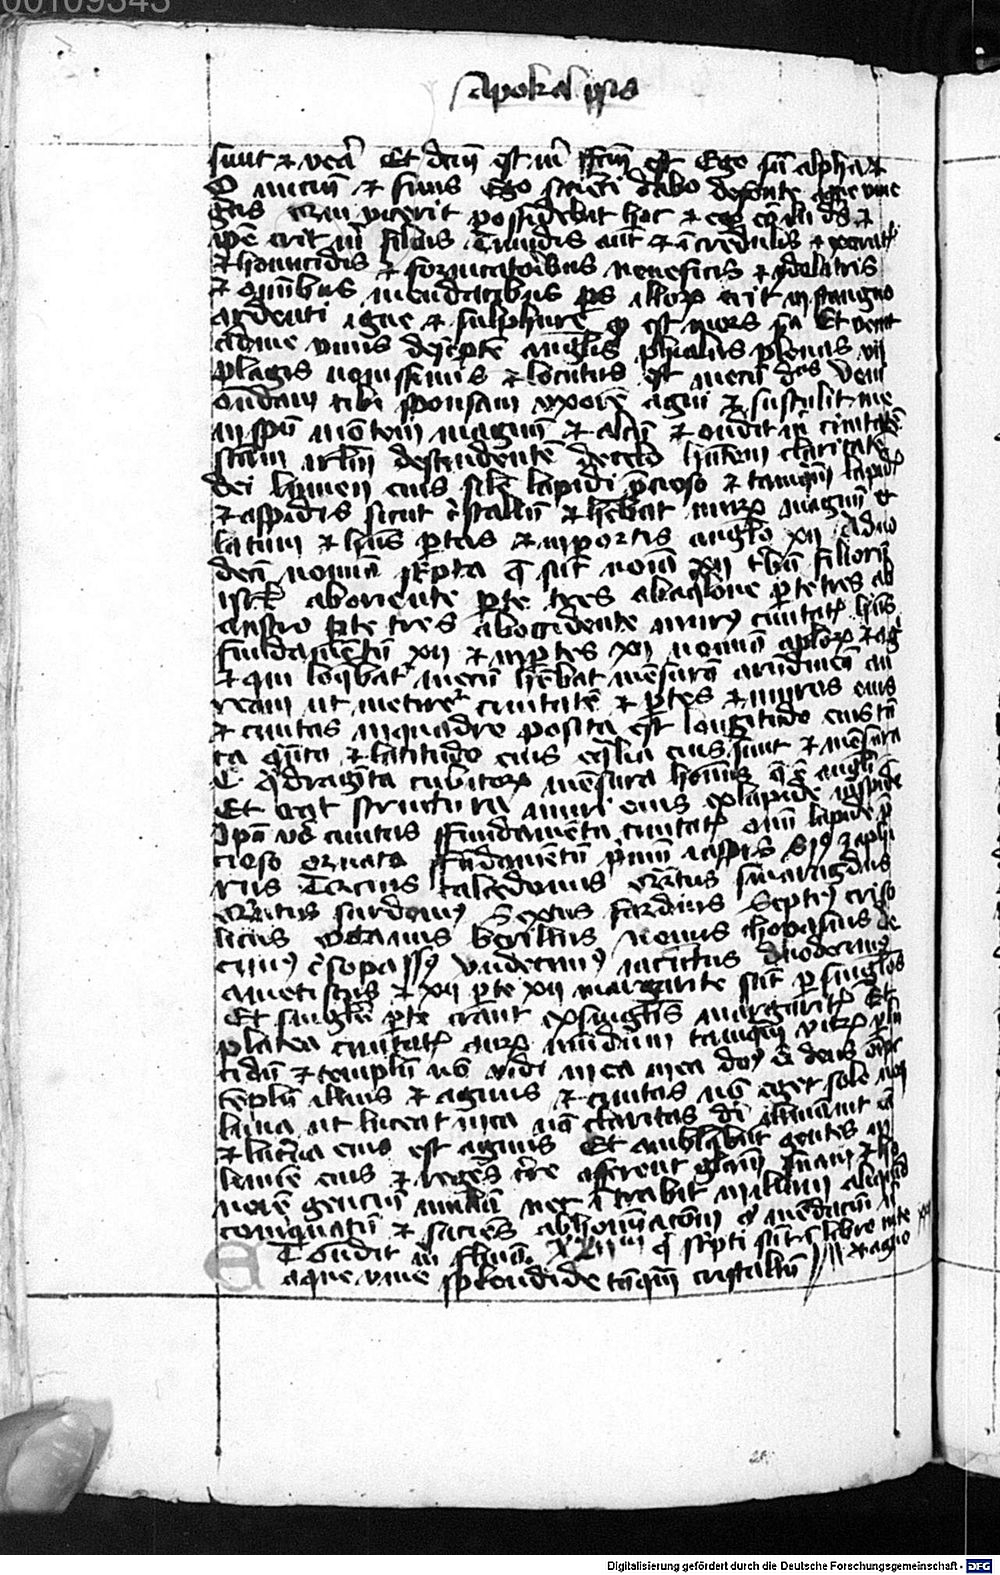 00109343
apokalipsis
sunt et vera Et dixit mihi factum est Ego sum alpha et
O inicium et finis Ego sicienti dabo de fonte aque vive
gratis qui vicerit possidebit hec et ero illi deus et
ipse erit mihi filius Timidis autem et incredulis et execratis
et homicidis et fornicatoribus veneficis et ydolatris
et omnibus mendacibus pars illorum erit in stangno
ardenti igne et sulphure quod est mors secunda Et venit
ad me unus de septem angelis phialas plenas vii
plagis novissimis et locutus est mecum dicens veni
ostendam tibi sponsam uxorem agni et sustulit me
in spiritu montem magnum et altum et ostendit mihi civitatem
sanctam iherusalem descendentem de celo habentem claritatem
dei lumen eius simile lapidi precioso et tamquam lapidis
et aspidis sicut cristallum et habebat murum magnum et
latum et habens portas et in portis angelos xii Ac duo
decim nomina scripta que sunt nomina xii tribuum filiorum
israhel ab oriente porte tres ab aquilone porte tres ab
austro porte tres ab occidente murus civitatis habens
fundamentum xii et in portis xii nomina apostolorum et agni
et qui loquebatur mecum habebat mensuram arundineam au
ream ut metiretur civitatem et portas et muros eius
et civitas in quadro posita est longitudo eius tan
ta quanta et latitudo eius equalia eius sunt et mensura
C quadraginta cubitorum mensura hominis que est angeli
Et erat structura muri eius ex lapide iaspide
Ipsa vero civitas fundamenta civitatis omni lapide pre
cioso ornata fundamentum primum iaspis saphi
rus Tercius calcedonius smaragdus
sardonius Sextus sardius Septimus criso
litus octavus berillus nonus thopasius de
cimus crisopassus undecimus iacinctus duodecimus
ametistus et xii porte xii margarite sunt per singulas
Et singule porte erant ex singulis margaritis Et
platea civitatis aurum mundum tamquam vitrum perlu
cidum et templum non vidi in ea deus omnipotens
templum illius et agnus et civitas non eget sole nec
luna ut luceat in ea nam claritas dei illuminavit eam
et lucerna eius est agnus Et ambulabunt gentes in
lumine eius et reges terre afferent gloriam suam et ho
norem gencium in illam nec intrabit in illam aliquid
coinquinatum et faciens abhominacionem et mendacium nisi
qui scripti sunt in libro vite et agno
Et ostendit mihi fluvium XXII
aque vive splendide tamquam cristallum
Digitalisierung gefördert durch die Deutsche Forschungsgemeinschaft - DFG